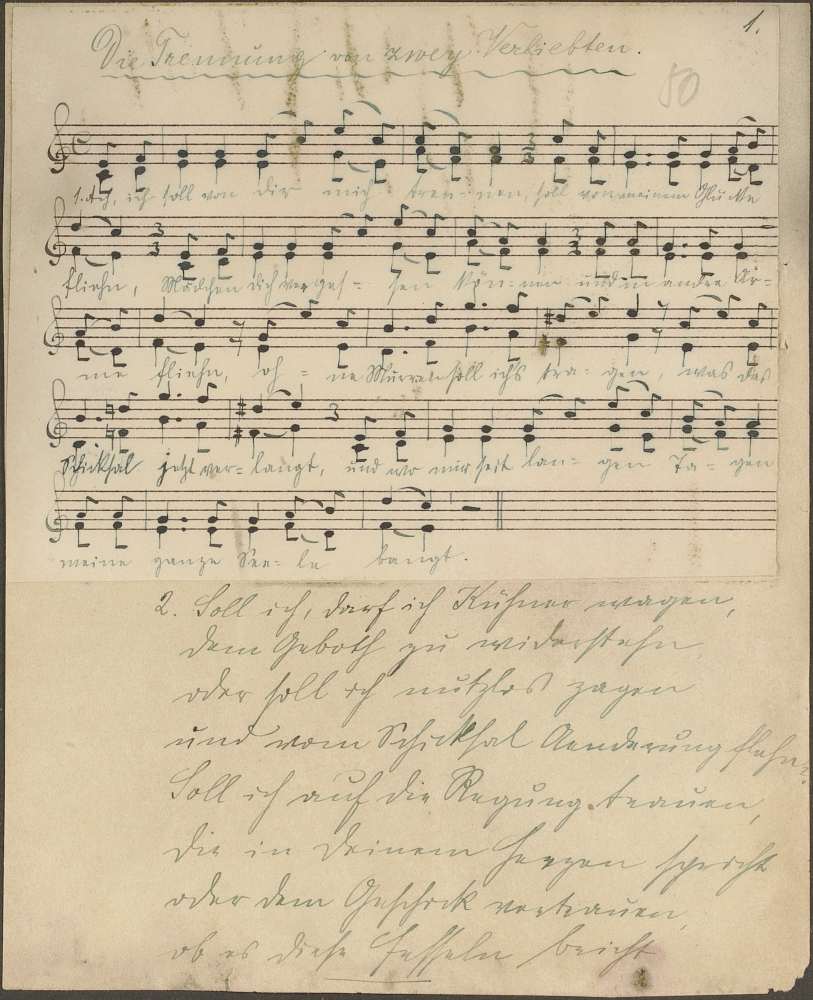 1.
Die Trennung von zwey Verliebten.
50
1. Ach, ich soll von dir mich tren=nen, soll von meinem Glücke
fliehn, Mädchen dich verges=sen kön=nen und in andre Ar=
me fliehn, oh=ne Murren soll ich's tra=gen, was das
Schicksal jetzt ver=langt, und wo mir seit lan=gen Ta=gen
meine ganze See=le bangt.
2. Soll ich, darf ich Kühner wagen,
dem Geboth zu widerstehn,
oder soll ich nutzlos zagen
und vom Schicksal Aenderung flehn?
Soll ich auf die Regung trauen,
die in deinem Herzen spricht
oder dem Geschick vertrauen,
ob es diese Fesseln bricht